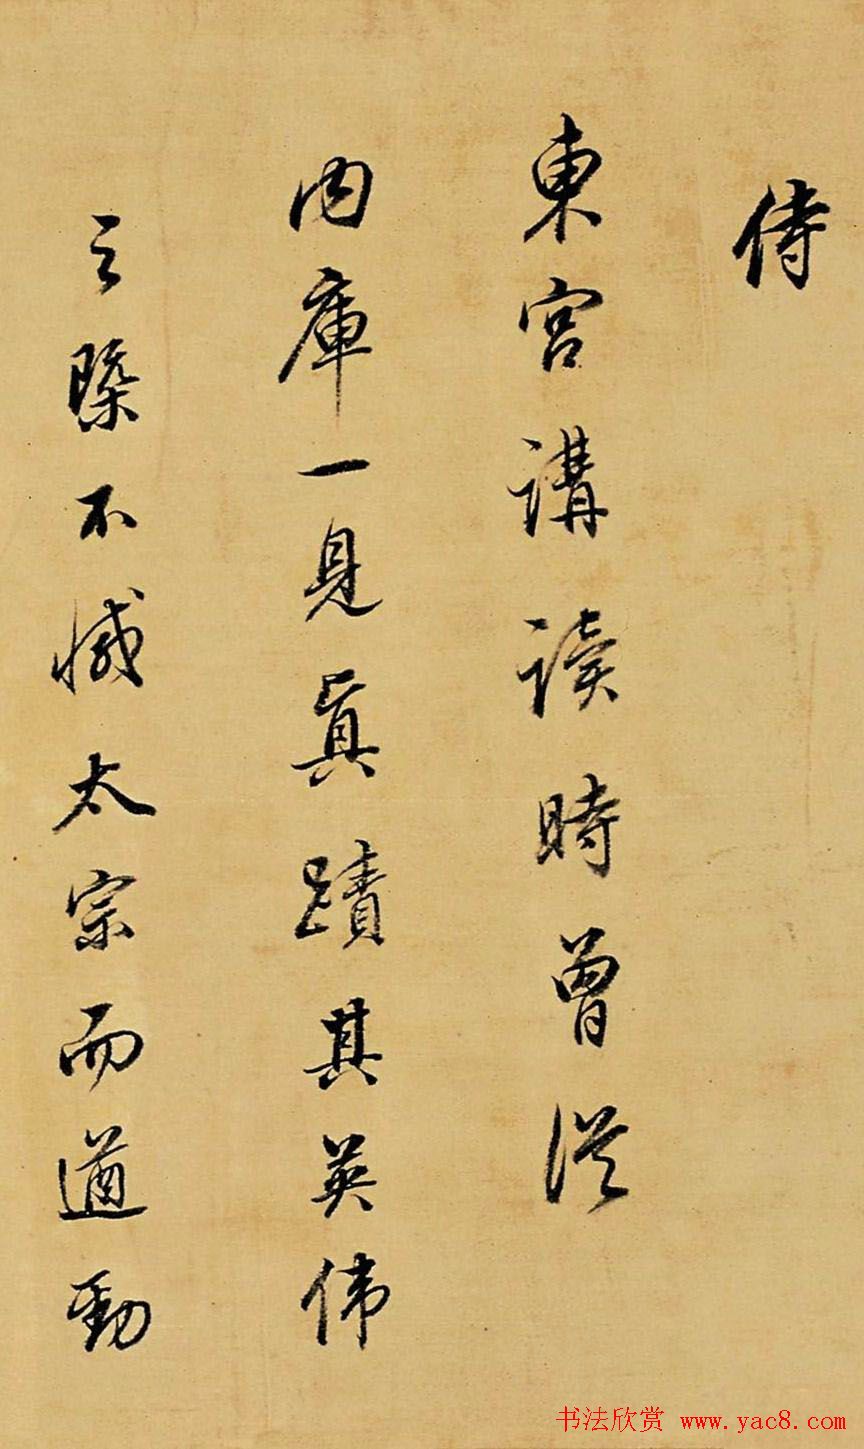 侍
東宮講讀時曾從
內庫一見真蹟其英偉
之槩不減太宗而遒勁
书法欣赏 www.yac8.com